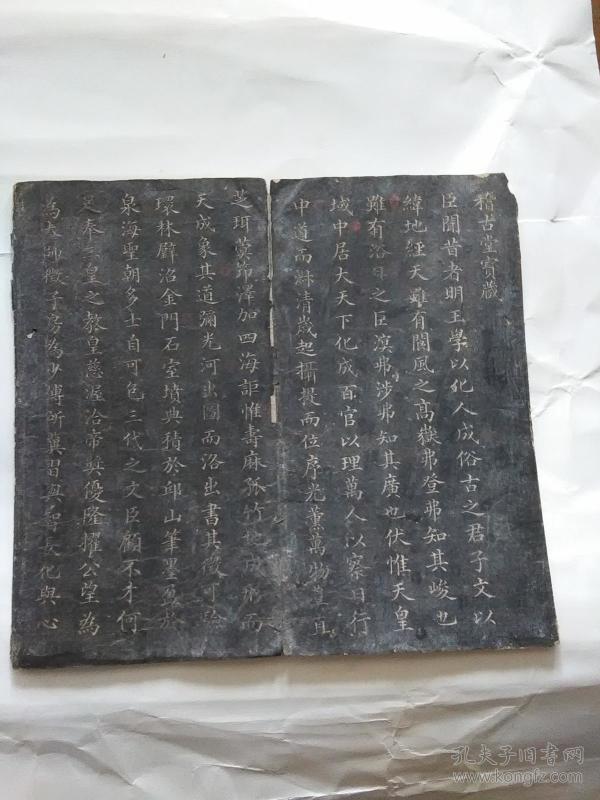 稽古堂寶藏
臣聞昔者明王學以化人成俗古之君子文以
緯地經天雖有閬風之高嶽弗登弗知其峻也
雖有浴日之臣溟弗涉弗知其廣也伏惟天皇
域中居大天下化成百官以理萬人以察日行
中道而歲起攝提而位序光萬物
澤加四海詎惟壽麻孤竹地成形而
天成象其道彌光河出圖而洛出書其
環林辟沼金門石室墳典積於邱山筆墨
泉海聖朝多士自可色三代之文臣顧不才何
足奉三皇之教皇慈渥洽帝與優隆擢公堂為
為太師徵子房為少傅所冀習與智長化與心
孔夫子旧书网
www.kongfz.com